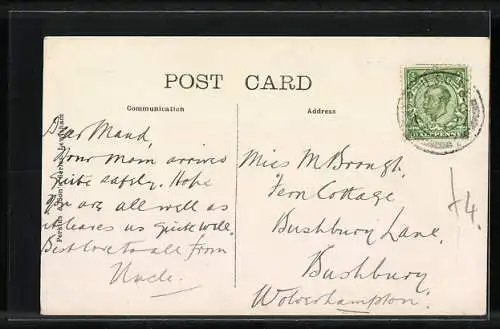 POST CARD
Communication
Address
Dear Maud,
Your mom arrived
quite safely. Hope
you are all well as
it leaves us quite well.
Best love to all from
Uncle.
Miss M Brough,
Fern Cottage
Bushbury Lane,
Bushbury
Wolverhampton.
HALFPENNY
Perkins & Son
Lewisham
£4.